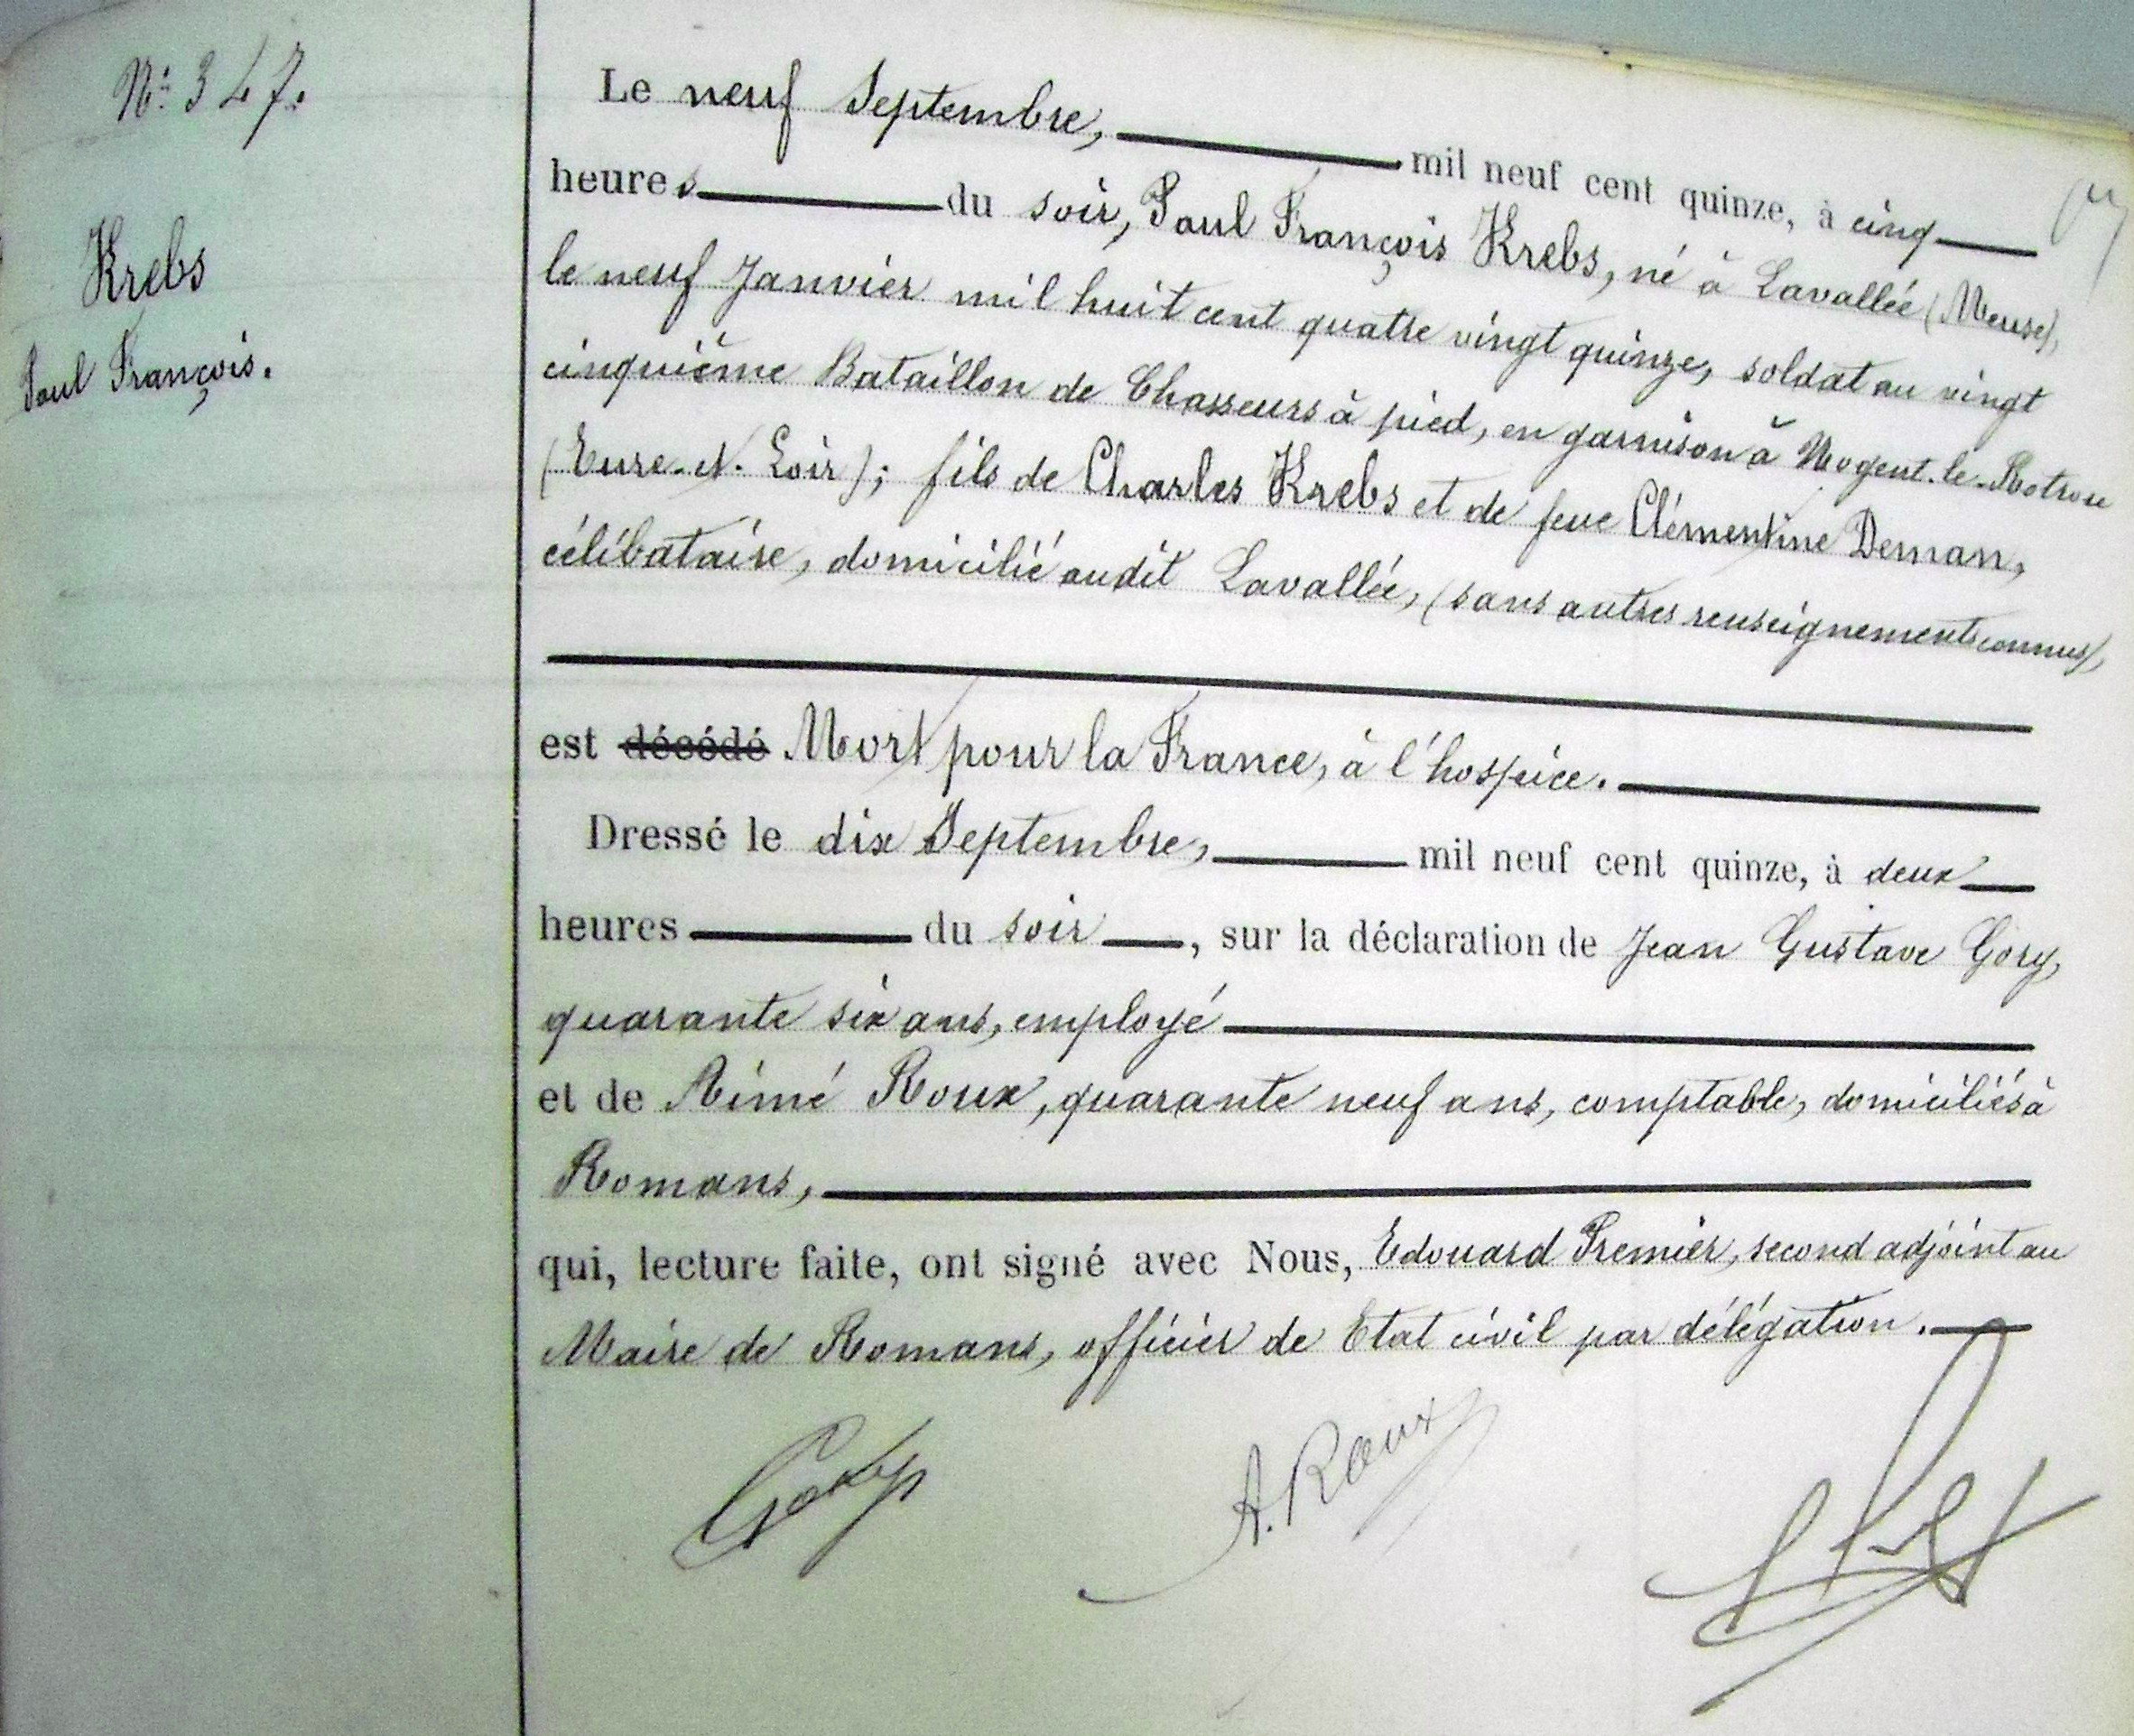 N° 347.
Krebs
Paul François.
Le neuf Septembre, mil neuf cent quinze, à cinq
heures du soir, Paul François Krebs, né à Lavallée (Meuse),
le neuf Janvier mil huit cent quatre vingt quinze, soldat au vingt
cinquième Bataillon de Chasseurs à pied, en garnison à Nogent-le-Rotrou
(Eure-et-Loir); fils de Charles Krebs et de feue Clémentine Deman,
célibataire, domicilié audit Lavallée, (sans autres renseignements connus),
est décédé Mort pour la France, à l'hospice.
Dressé le dix Septembre, mil neuf cent quinze, à deux
heures du soir, sur la déclaration de Jean Gustave Gory,
quarante six ans, employé
et de Aimé Roux, quarante neuf ans, comptable, domiciliés à
Romans,
qui, lecture faite, ont signé avec Nous, Edouard Premier, second adjoint au
Maire de Romans, officier de Etat civil par délégation.
Gory A. Roux